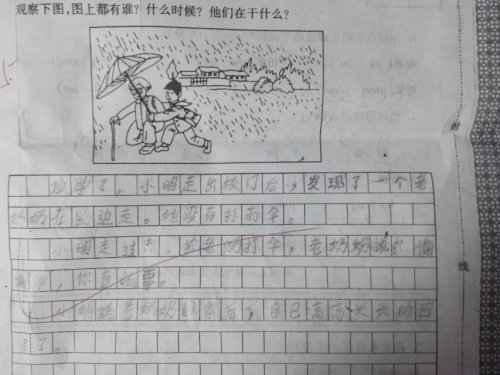 观察下图,图上都有谁?什么时候?他们在干什么?
放学了,小明走出校门后,发现了一个老
奶奶在路边走。她没有打雨伞。
小明走过去,给老奶奶打伞,老奶奶说:谢
你有
小明 老奶奶 家后,自己高高兴兴的回
了。
封
线